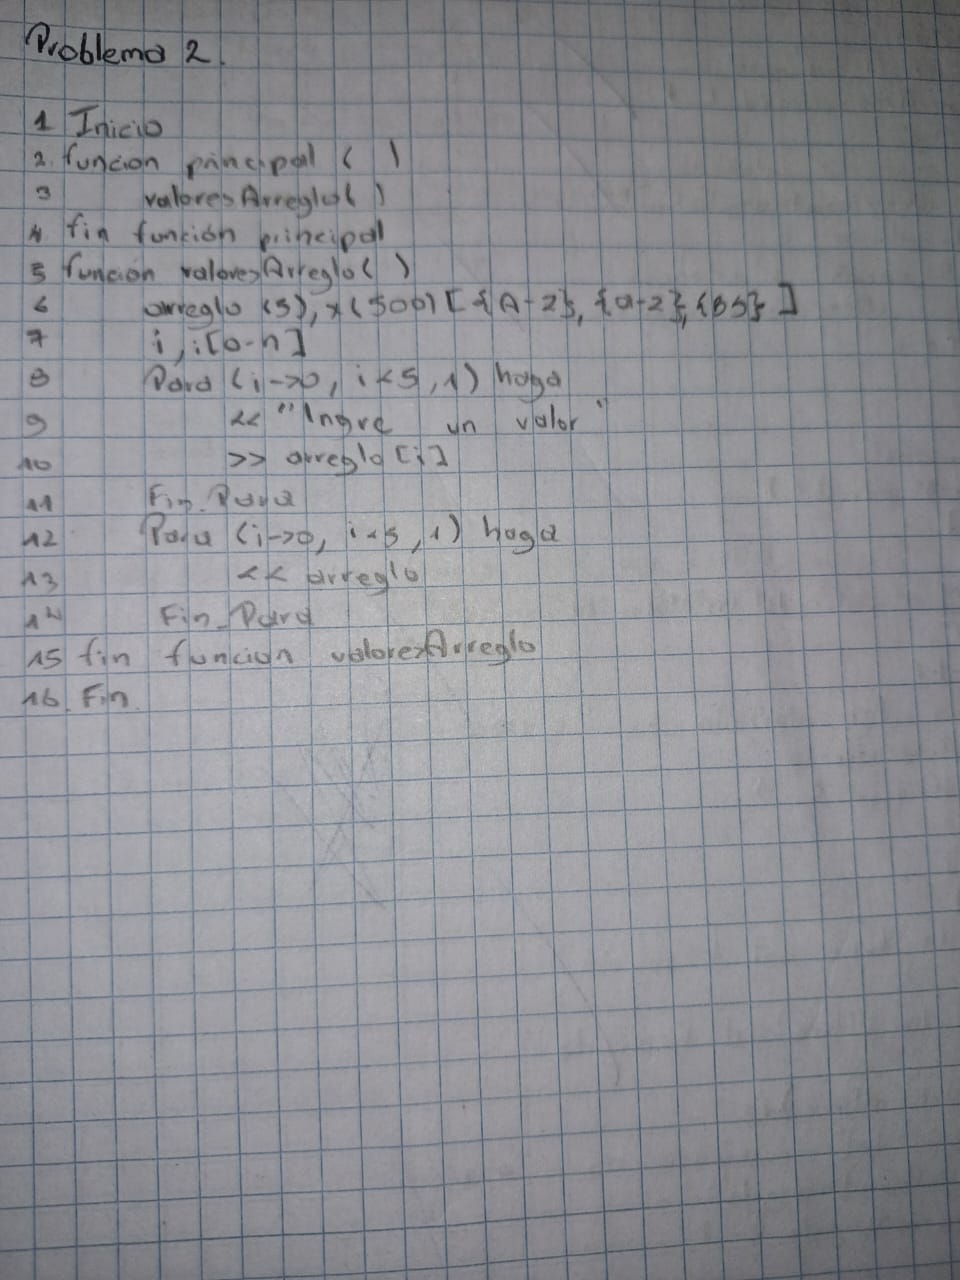 Problema 2.
1 Inicio
2. funcion principal ( )
3 valoresArreglo( )
4 fin función principal
5 funcion valoresArreglo( )
6 arreglo (5), x(500) [ {A-Z}, {a-z}, {BS} ]
7 i, i[0-n]
8 Para (i->0, i<5, 1) haga
9 << "Ingre un valor"
10 >> arreglo [i]
11 Fin_Para
12 Para (i->0, i<5, 1) haga
13 << arreglo
14 Fin_Para
15 fin funcion valoresArreglo
16. Fin.